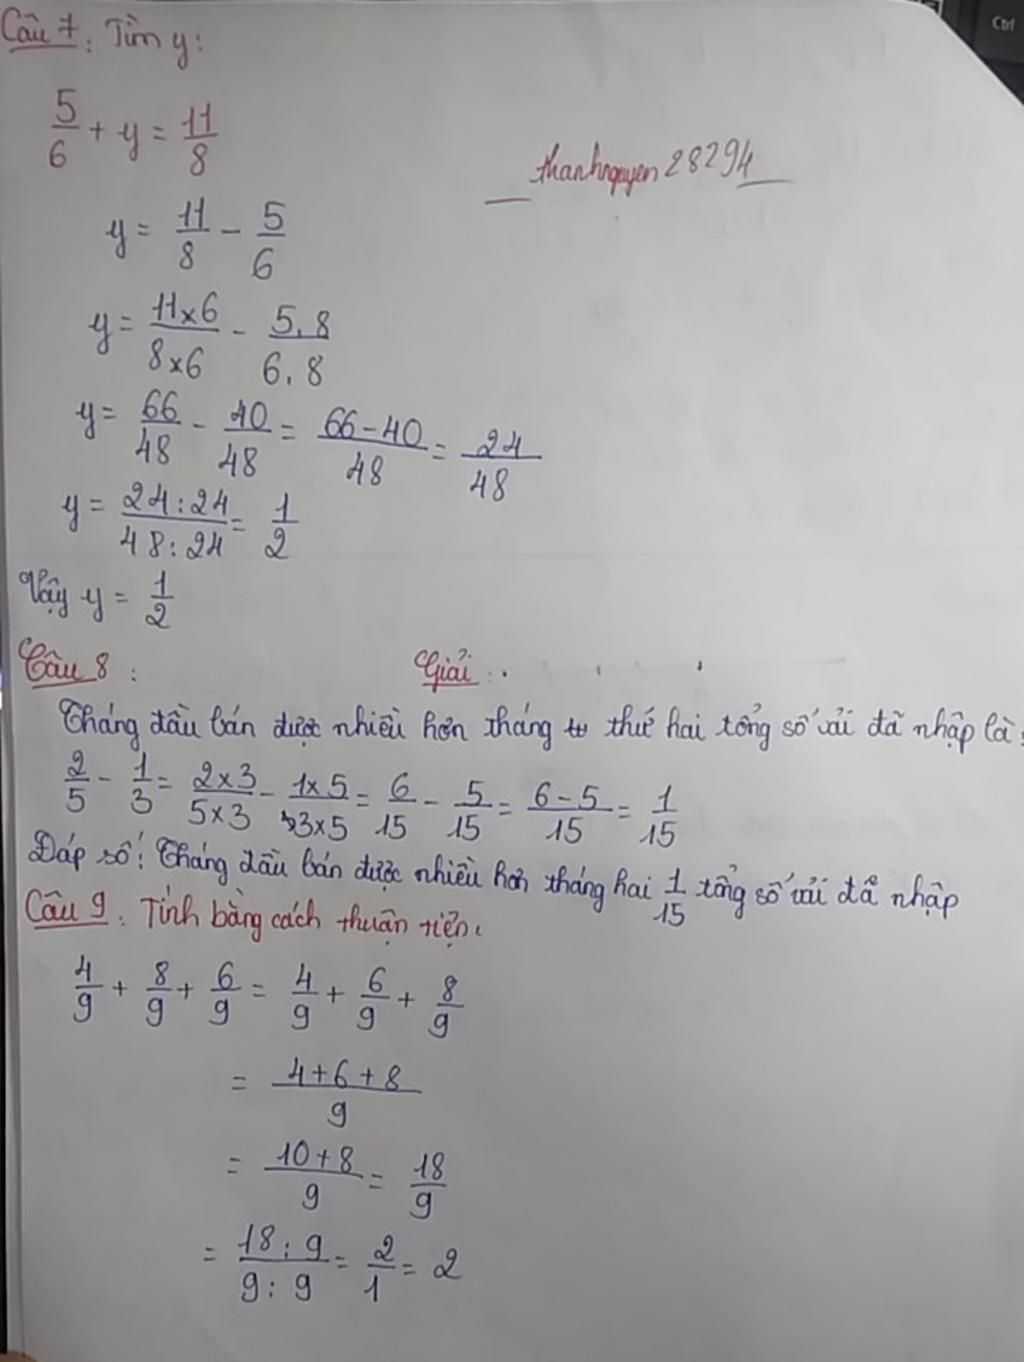 Ctrl
Câu 7: Tìm y:
5/6 + y = 11/8
thanhnguyen28294
y = 11/8 - 5/6
y = 11x6/8x6 - 5.8/6.8
y = 66/48 - 40/48 = 66-40/48 = 24/48
y = 24:24/48:24 = 1/2
Vậy y = 1/2
Câu 8: Giải:
Tháng đầu bán được nhiều hơn tháng thứ hai tổng số vải đã nhập là:
2/5 - 1/3 = 2x3/5x3 - 1x5/3x5 = 6/15 - 5/15 = 6-5/15 = 1/15
Đáp số: Tháng đầu bán được nhiều hơn tháng hai 1/15 tổng số vải đã nhập
Câu 9: Tính bằng cách thuận tiện:
4/9 + 8/9 + 6/9 = 4/9 + 6/9 + 8/9
= 4+6+8/9
= 10+8/9 = 18/9
= 18:9/9:9 = 2/1 = 2